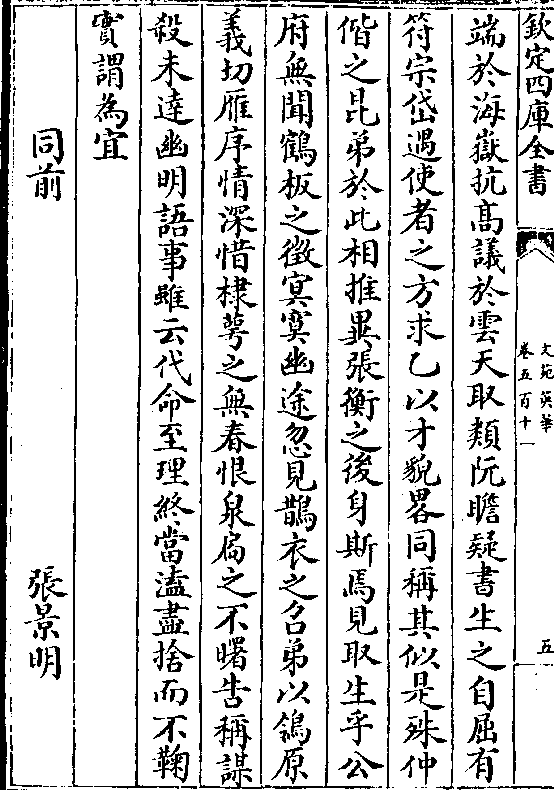 欽定四庫全書
文苑英華
卷五百十一
五
端於海嶽抗髙議於雲天取類阮瞻疑書生之自屈有
符宗岱遇使者之方求乙以才貌畧同稱其似是殊仲
偕之昆弟於此相推異張衡之後身斯焉見取生乎公
府無聞鶴板之徵冥寞幽途忽見鵲衣之召弟以鴒原
義切雁序情深惜棣萼之無春恨泉扄之不曙告稱謀
殺未達幽明語事雖云代命至理終當溘盡捨而不鞠
實謂為宜
同前
張景明